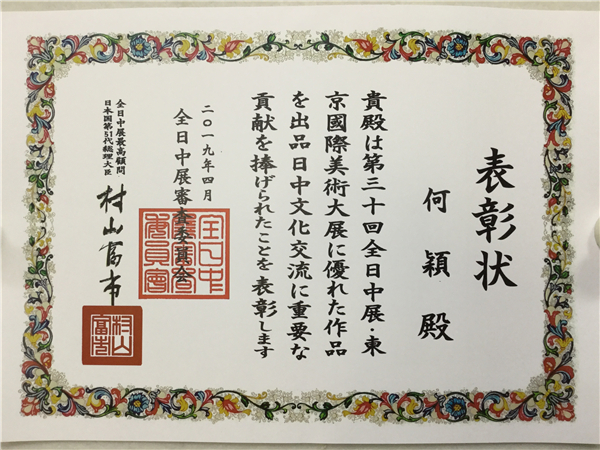 表彰状
何穎殿
貴殿は第三十回全日中展・東
京國際美術大展に優れた作品
を出品日中文化交流に重要な
貢献を捧げられたことを表彰します
二〇一九年四月
全日中展審査委員会
全日中展最高顧問
日本国第51代総理大臣
村山富市
村山
富市